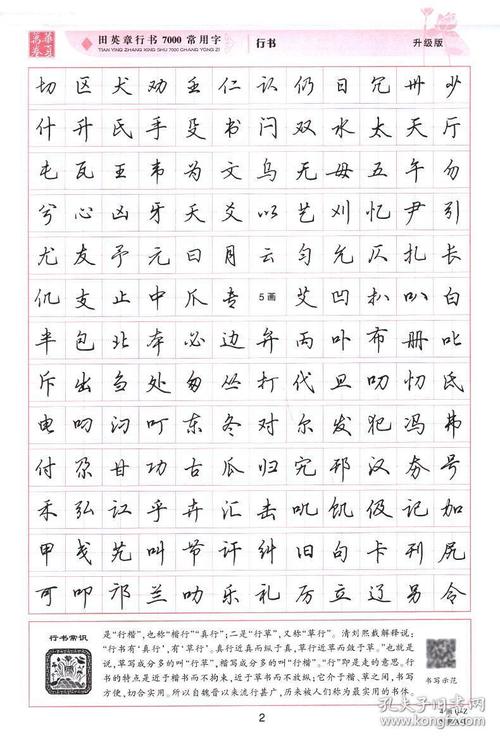 华夏万卷
田英章行书 7000 常用字
TIAN YING ZHANG XING SHU 7000 CHANG YONG ZI
行书
升级版
切区犬劝主仁认仍日冗卅少
什升氏手殳书闩双水太天厅
屯瓦王韦为文乌无毋五午勿
兮心凶牙夭爻以艺刈忆尹引
尤友予元曰月云匀允仄扎长
仉支止中爪专 5画 艾凹扒叭白
半包北本必边弁丙卟布册叱
斥出刍处匆丛打代旦叨忉氐
电叼汈叮东冬对尔发犯冯弗
付尕甘功古瓜归宄邗汉夯号
禾弘讧乎卉汇击叽饥伋记加
甲戋艽叫节讦纠旧句卡刊尻
可叩邝兰叻乐礼厉立辽另令
行书常识
是“行楷”，也称“楷行”“真行”；二是“行草”，又称“草行”。清刘熙载解释说：
“行书有‘真行’，有‘草行’。真行近真而纵于真，草行近草而敛于草。”也就是
说，草写成分多的叫“行草”，楷写成分多的叫“行楷”。“行”即是走的意思。行
书的特点是近于楷而不拘束，近于草而不放纵；它介于楷、草之间，书写
方便，切合实用。所以自魏晋以来流行甚广，历来被人们称为最实用的书体。
书写示范
2
孔夫子旧书网